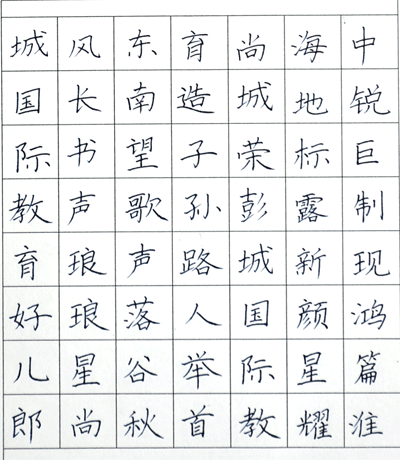 中锐巨制现鸿篇淮
海地标露新颜星耀
尚城荣彭城国际教
育造子孙路人举首
东南望歌声落谷秋
风长书声琅琅星尚
城国际教育好儿郎